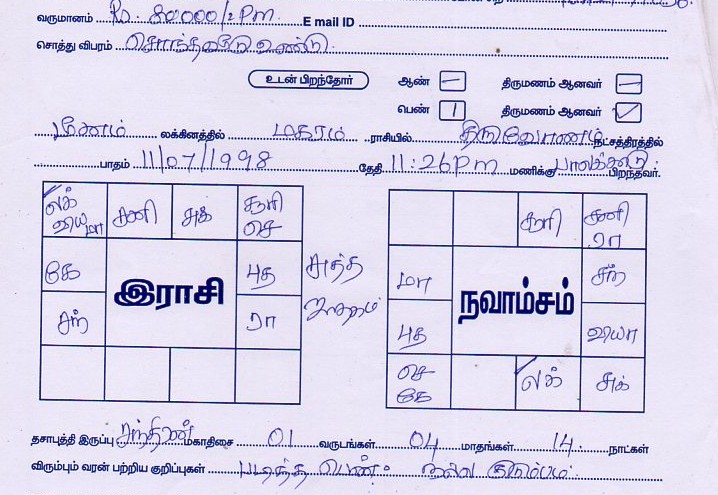 வருமானம் Rs. 80000/2 Pm E mail ID
சொத்து விபரம் சொந்தவீடு உண்டு.
உடன் பிறந்தோர் ஆண் — திருமணம் ஆனவர் —
பெண் 1 திருமணம் ஆனவர் ✓
மீனம் லக்கினத்தில் மகரம் ராசியில் திருவோணம் நட்சத்திரத்தில்
பாதம் 11/07/1998 தேதி 11:26 Pm மணிக்கு பாலக்காடு பிறந்தவர்.
லக் வியா மா சனி சுக் சூரி செ
கே புத
சந் ரா
இராசி
சுத்த ஜாதகம்
சூரி சனி ரா
மா சந்
புத வியா
செ கே லக் சுக்
நவாம்சம்
தசாபுத்தி இருப்பு சந்திரன் மகாதிசை 01 வருடங்கள் 04 மாதங்கள் 14 நாட்கள்
விரும்பும் வரன் பற்றிய குறிப்புகள் படித்த பெண். நல்ல குடும்பம்